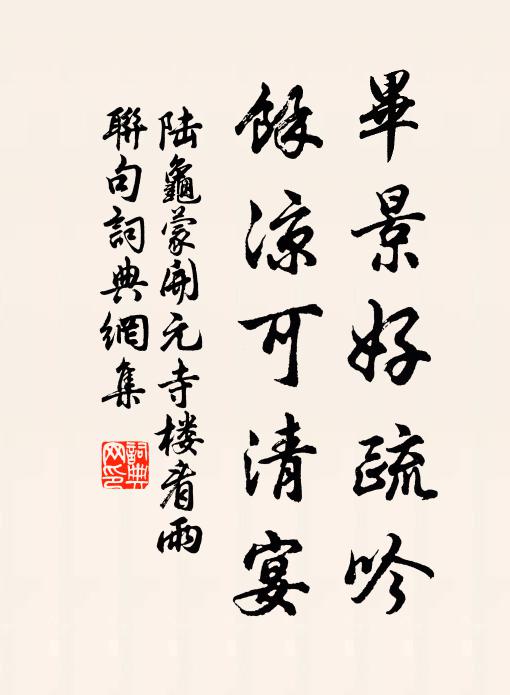 畢景好疏吟
餘涼可清宴
陸龜蒙開元寺楼看雨
聯句詞典網集
詞典网印